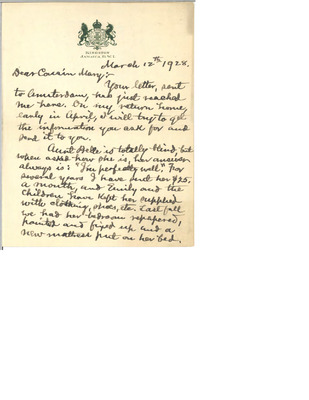 Kingston
Jamaica, B.W.I.
March 12th 1928.
Dear Cousin Mary:-
Your letter, sent
to Amsterdam, has just reached
me here. On my return home,
early in April, I will try to get
the information you ask for and
send it to you.
Aunt Belle is totally blind, but
when asked how she is, her answer
always is: "I'm perfectly well." For
several years I have sent her $25.
a month, and Emily and the
children have kept her supplied
with clothing, shoes, etc. Last fall
we had her bedroom repapered,
painted and fixed up and a
new mattress put on her bed.